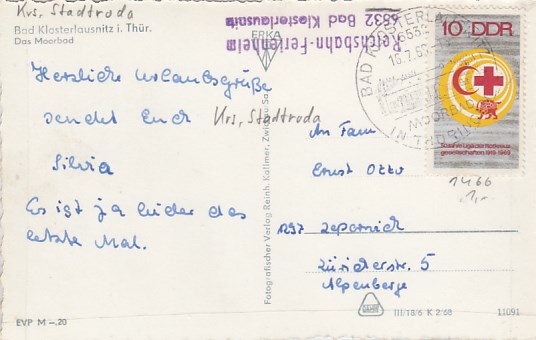 Krs. Stadtroda
Bad Klosterlausnitz i. Thür.
Das Moorbad
ERKA
Reichsbahn-Ferienheim
6532 Bad Klosterlausnitz
BAD KLOSTERLAUSNITZ
6532
MOORBAD
IN THÜRINGEN
10 DDR
50 Jahre Liga der Rotkreuz-
gesellschaften 1919-1969
1466
1,-
Herzliche Urlaubsgrüße
sendet Euch
Silvia
Es ist ja leider das
letzte Mal.
Krs. Stadtroda
An Fam
Ernst Otto
1297 Zepernick
Züricherstr. 5
Alpenberge
Fotografischer Verlag Reinh. Kallmer, Zwickau Sa.
EVP M –.20
III/18/6 K 2/68
11091